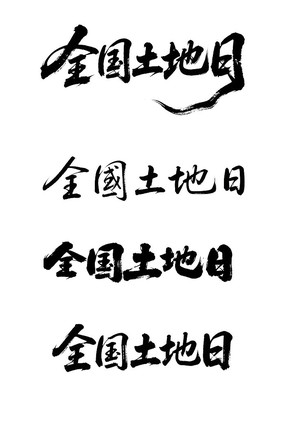 全国土地日
全國土地日
全国土地日
全国土地日